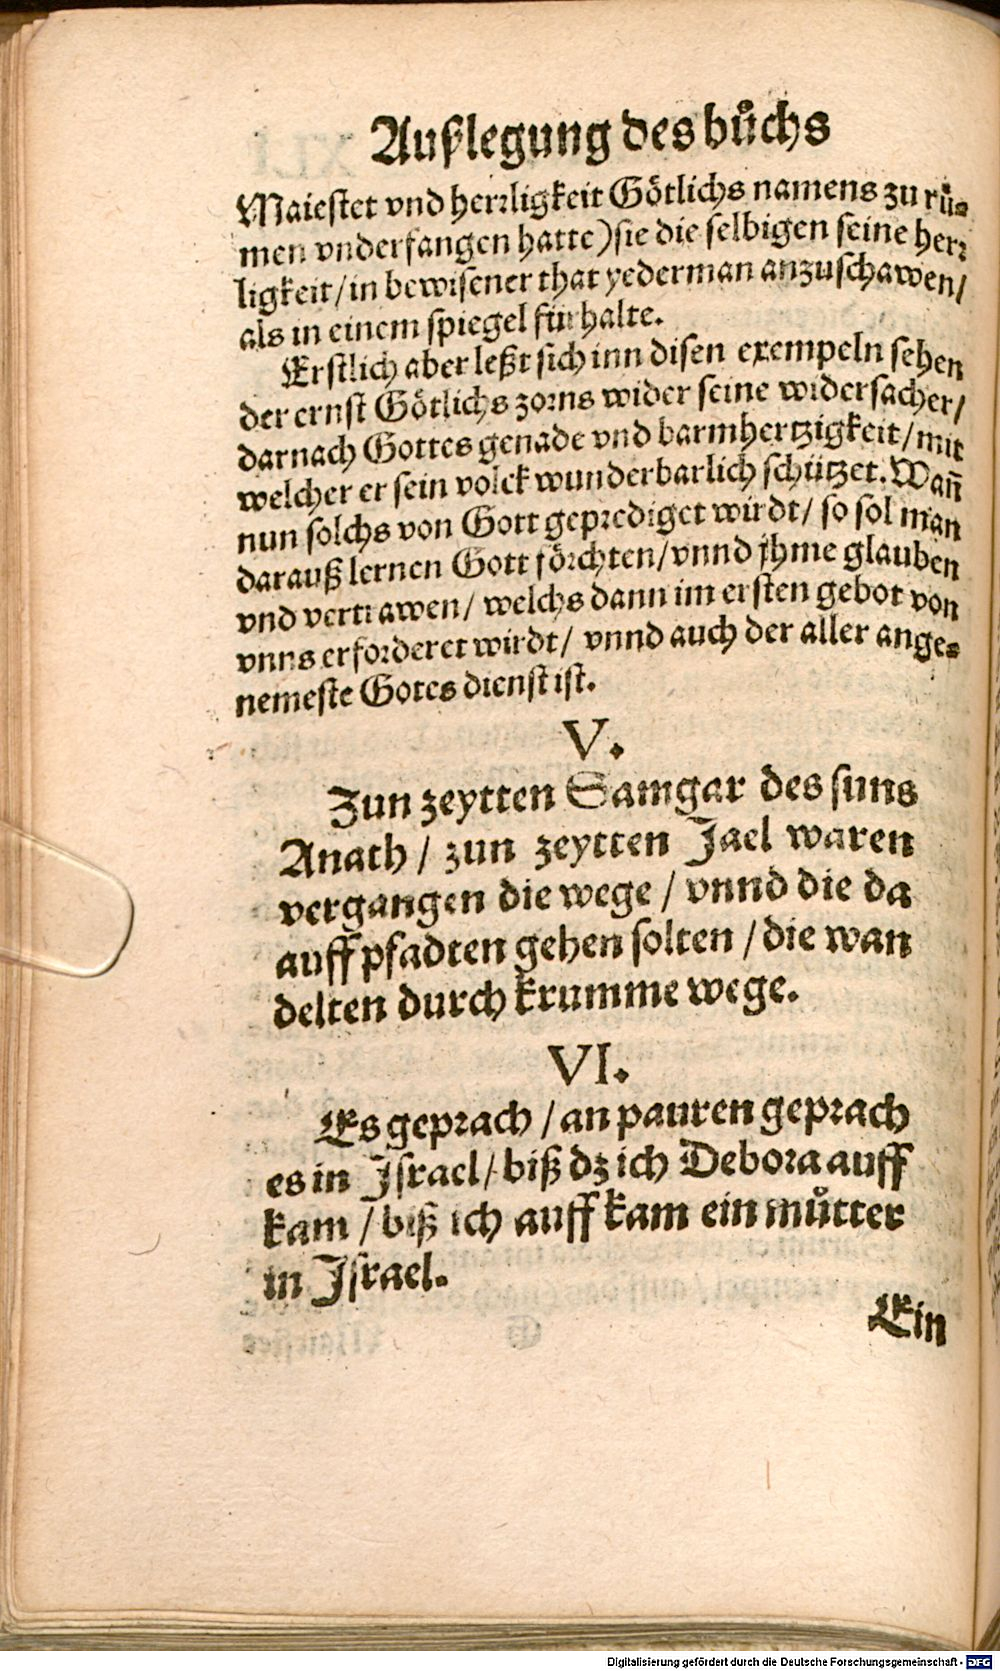 Außlegung des bůchs
Maiestet vnd herrligkeit Götlichs namens zu rů-
men vnderfangen hatte) sie die selbigen seine herr
ligkeit / in bewisener that yederman anzuschawen /
als in einem spiegel fürhalte.
Erstlich aber leßt sich inn disen exempeln sehen
der ernst Götlichs zorns wider seine widersacher /
darnach Gottes genade vnd barmhertzigkeit / mit
welcher er sein volck wunderbarlich schützet. Wañ
nun solchs von Gott geprediget wirdt / so sol man
darauß lernen Gott förchten / vnnd jhme glauben
vnd vertrawen / welchs dann im ersten gebot von
vnns erforderet wirdt / vnnd auch der aller ange-
nemeste Gotes dienst ist.
V.
Zun zeytten Samgar des suns
Anath / zun zeytten Jael waren
vergangen die wege / vnnd die da
auff pfadten gehen solten / die wan
delten durch krumme wege.
VI.
Es geprach / an pauren geprach
es in Jsrael / biß dz ich Debora auff
kam / biß ich auff kam ein můtter
in Jsrael.
Ein
Digitalisierung gefördert durch die Deutsche Forschungsgemeinschaft - DFG